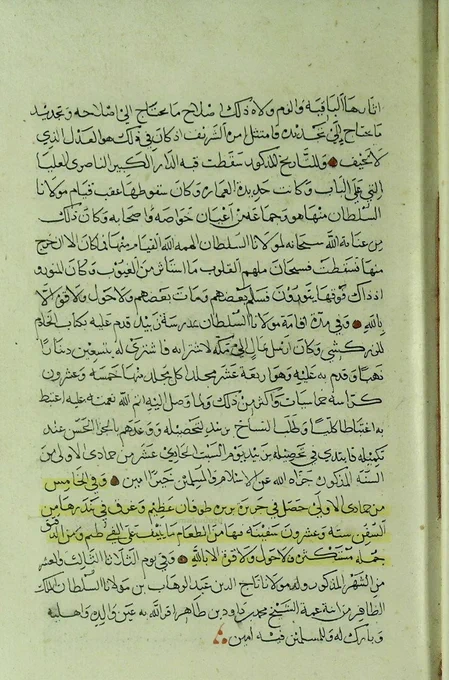 اثارها الباقية والزم ولاة ذلك اصلاح ما يحتاج الى اصلاحه وتجديد
ما يحتاج الى تجديده فامتثل امره الشريف اذ كان في ذلك هو العدل الذي
لا يحيف وللتاريخ المذكور سقطت قبة الدار الكبير الناصري العليا
التي على الباب وكانت جديدة العمارة وكان سقوطها عقب قيام مولانا
السلطان منها هو وجماعة من اعيان خواصه واصحابه وكان ذلك
من عناية الله سبحانه لمولانا السلطان الهمه الله القيام منها فما كان الا ان خرج
منها فسقطت فسبحان ملهم القلوب ما استاثر من الغيوب وكان
اذ ذاك فوقها فسلم بعضهم ومات بعضهم ولا حول ولا قوة الا
بالله وفي مدة اقامة مولانا السلطان بمدرسة زبيد قدم عليه بكتاب الخادم
للزركشي وكان ارسل بمال الى مكة لاشترائه فاشترى له بتسعين دينارا
ذهبا وقدم به عليه وهو اربعة عشر مجلدا كل مجلد منها خمسة وعشرون
كراسة خماسيات واكثر من ذلك ولما وصل اليه اتم الله نعمته عليه اغتبط
به اغتباطا كليا وطلب النساخ بزبيد لتحصيله ووعدهم بالجزاء الحسن عند
تكميله فابتدي في تحصيله بزبيد يوم السبت الحادي عشر من جمادى الاولى من
السنة المذكورة جزاه الله عن الاسلام والمسلمين خيرا امين وفي الخامس
من جمادى الاولى حصل في جزيرة طوفان عظيم وغرق في بندرها من
السفن ستة وعشرون سفينة بها من الطعام ما ينيف على ومن الدقيق
جملة مستكثرة ولا حول ولا قوة الا بالله وفي يوم الثلاثاء الثالث والعشرين
من الشهر المذكور ولد مولانا تاج الدين عبد الوهاب بن مولانا السلطان الملك
الظافر من ابنة عمه الشيخ محمد بن داود بن طاهر اقر الله به عين والده واهليه
وبارك له وللمسلمين فيه امين